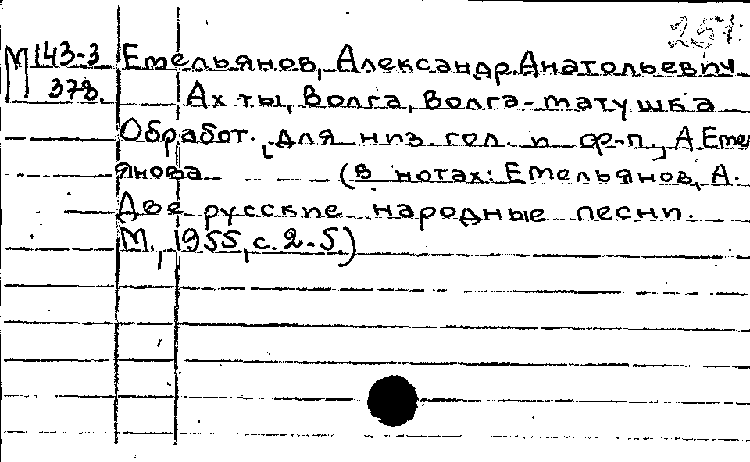 257.
М143-3 Емельянов, Александр Анатольевич
378. Ах ты, Волга, Волга-матушка
Обработ. [для низ. гол. и ф-п.] А. Емел
янова (В нотах: Емельянов, А.
Две русские народные песни.
М., 1955, с. 2-5.)